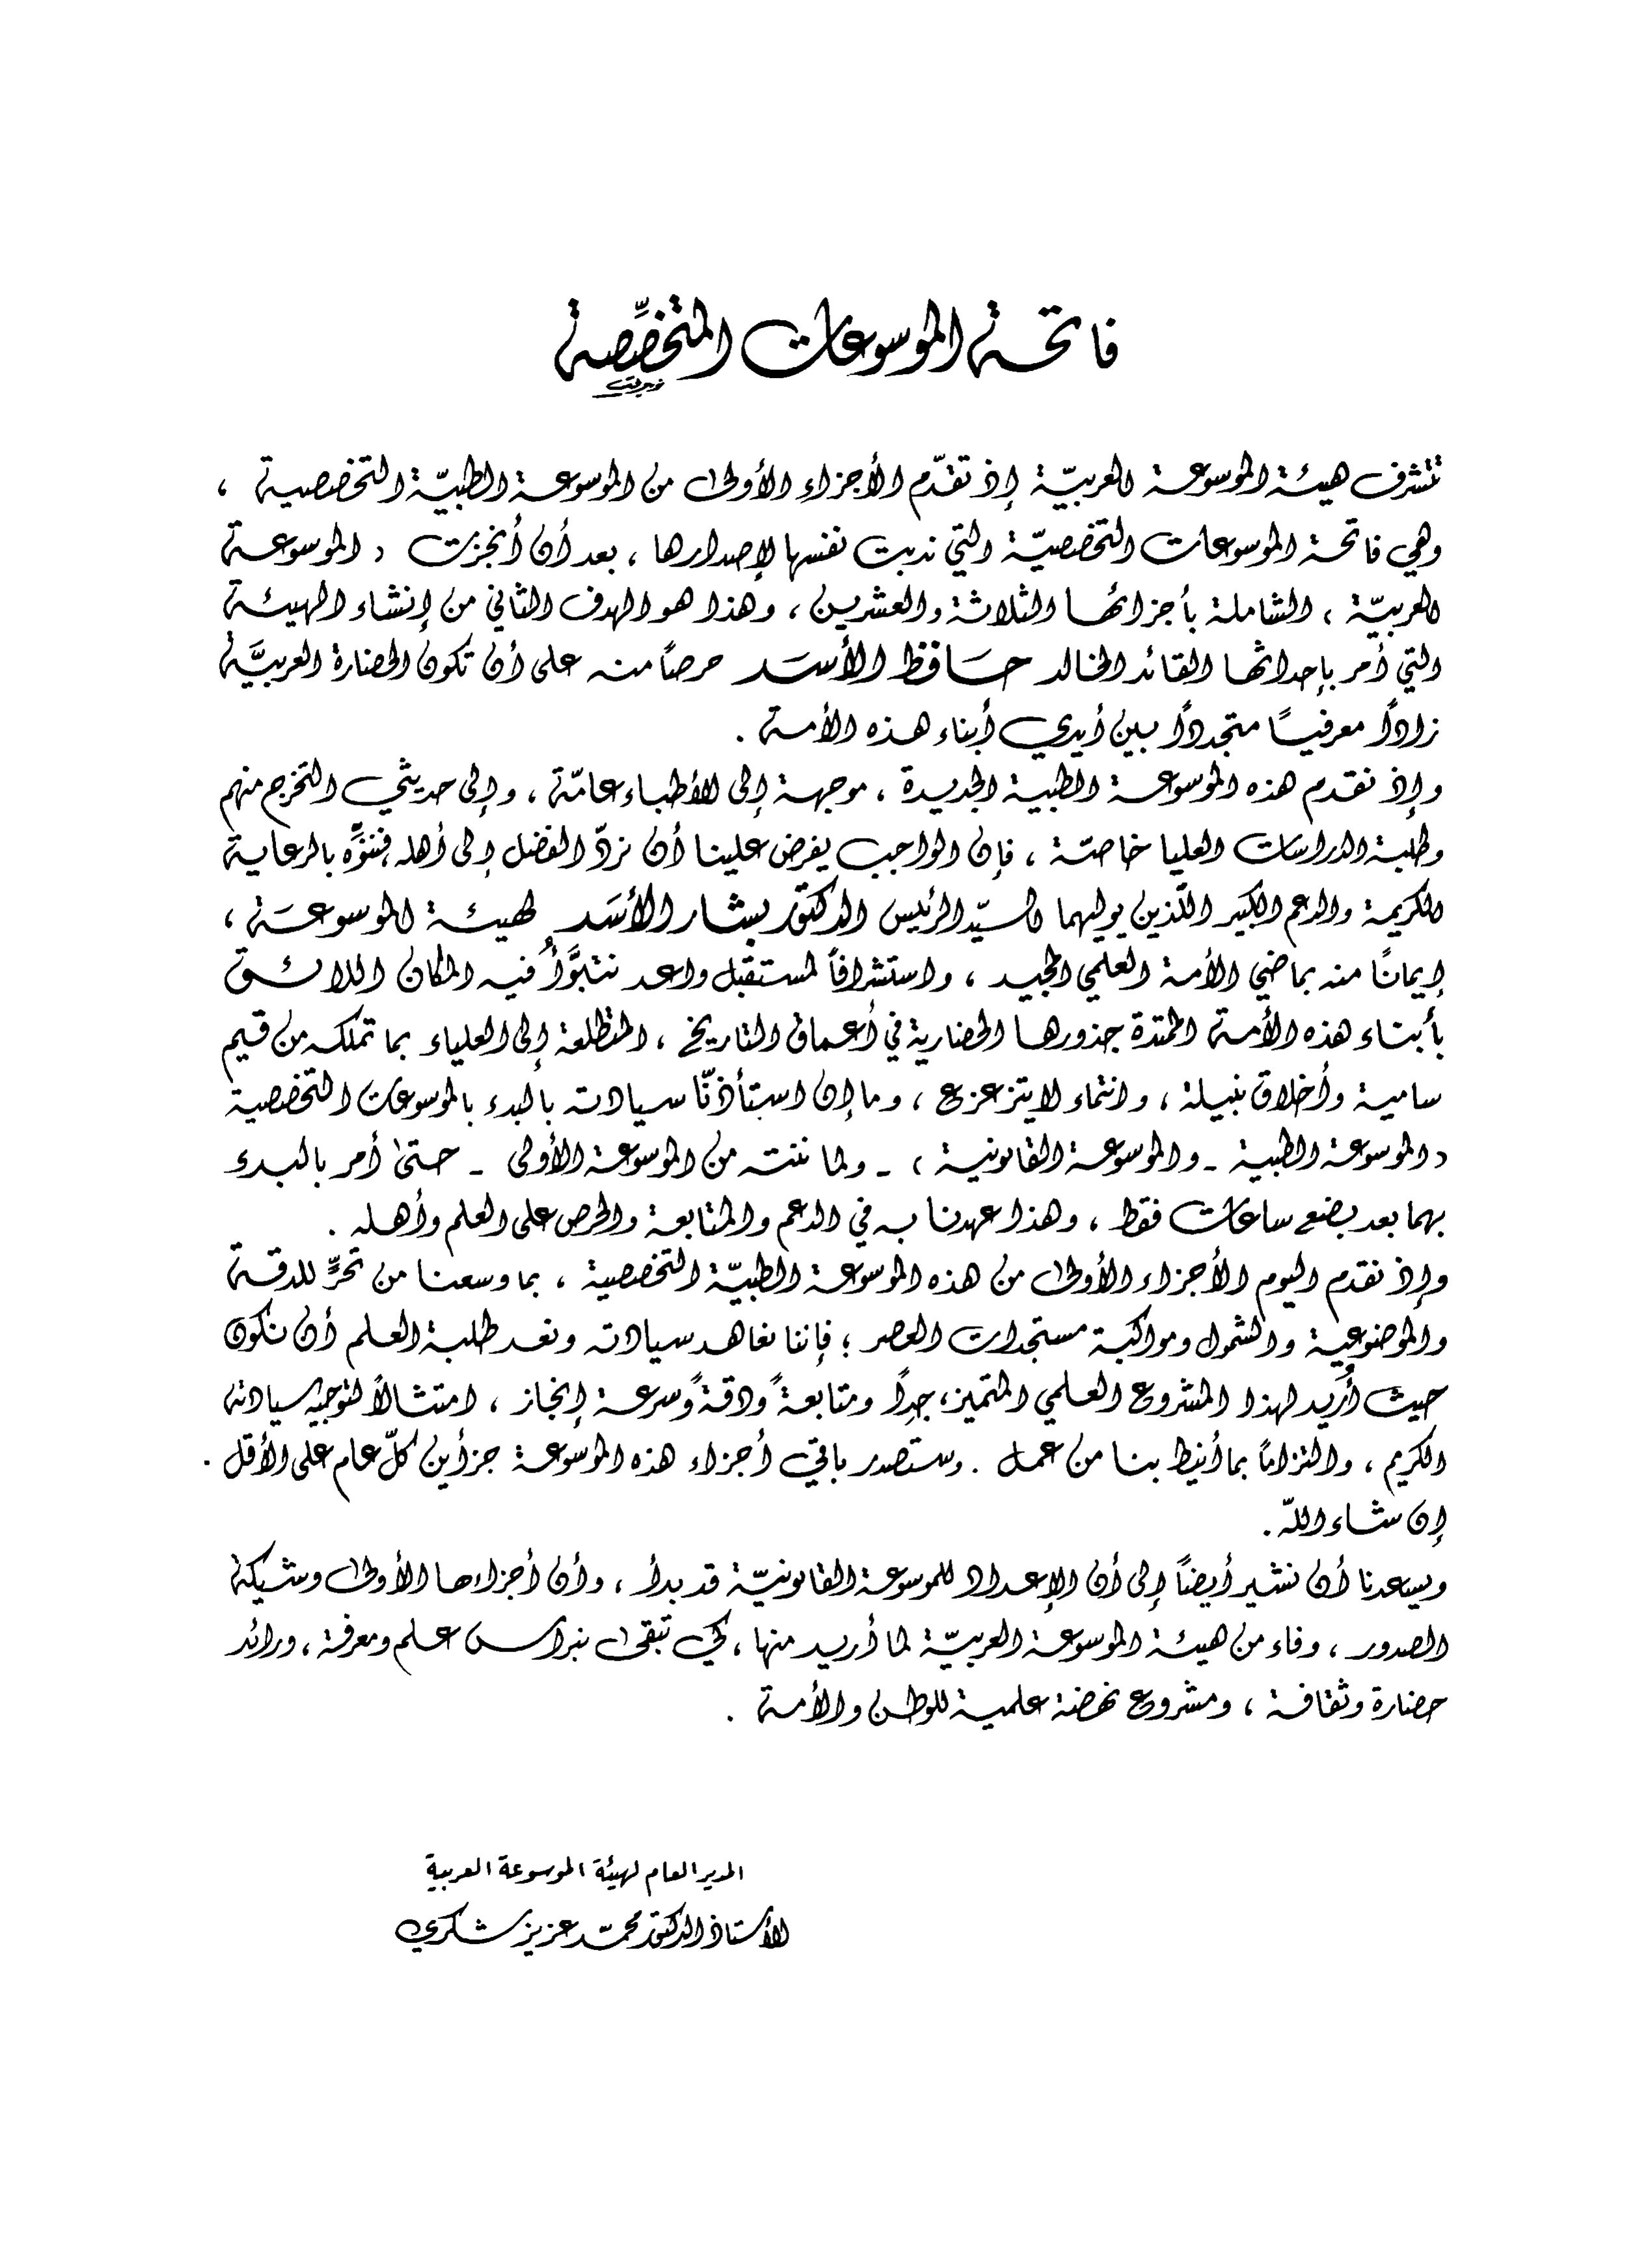 فاتحة الموسوعات المتخصِّصة
تتشرف هيئة الموسوعة العربيّة إذ تقدّم الأجزاء الأولى من الموسوعة الطبيّة التخصصية ،
وهي فاتحة الموسوعات التخصصيّة التي ندبت نفسها لإصدارها ، بعد أن أنجزت « الموسوعة
العربيّة » الشاملة بأجزائها الثلاثة والعشرين ، وهذا هو الهدف الثاني من إنشاء الهيئة
التي أمر بإحداثها القائد الخالد حَافظ الأسَد حرصاً منه على أن تكون الحضارة العربيَّة
زاداً معرفياً متجدداً بين أيدي أبناء هذه الأمة .
وإذ نقدم هذه الموسوعة الطبية الجديدة ، موجهة إلى الأطباء عامّة ، وإلى حديثي التخرج منهم
وطلبة الدراسات العليا خاصّة ، فإن الواجب يفرض علينا أن نردّ الفضل إلى أهله فننوِّه بالرعاية
الكريمة والدعم الكبير اللّذين يوليهما السيّد الرئيس الدكتور بشار الأسَد لهيئة الموسوعَة ،
إيمانًا منه بماضي الأمة العلمي المجيد ، واستشرافاً لمستقبل واعد نتبوَّأُ فيه المكان اللائق
بأبناء هذه الأمة الممتدة جذورها الحضارية في أعماق التاريخ ، المتطلعة إلى العلياء بما تملكه من قيم
سامية وأخلاق نبيلة ، وانتماء لا يتزعزع ، وما إن استأذنّا سيادته بالبدء بالموسوعات التخصصية
« الموسوعة الطبية ـ والموسوعة القانونية » ـ ولما ننته من الموسوعة الأولى ـ حتىٰ أمر بالبدء
بهما بعد بضع ساعات فقط ، وهذا عهدنا به في الدعم والمتابعة والحرص على العلم وأهله .
وإذ نقدم اليوم الأجزاء الأولى من هذه الموسوعة الطبيّة التخصصية ، بما وسعنا من تحرٍّ للدقة
والموضوعية والشمول ومواكبة مستجدات العصر ؛ فإننا نعاهد سيادته ونعد طلبة العلم أن نكون
حيث أُريد لهذا المشروع العلمي المتميز، جِداً ومتابعةً ودقةً وسرعة إنجاز ، امتثالاً لتوجيه سيادته
الكريم ، والتزاماً بما أنيط بنا من عمل . وستصدر باقي أجزاء هذه الموسوعة جزأين كلّ عام على الأقل .
إن شاء اللّه .
ويسعدنا أن نشير أيضاً إلى أن الإعداد للموسوعة القانونيّة قد بدأ ، وأن أجزاءها الأولى وشيكة
الصدور ، وفاء من هيئة الموسوعة العربيّة لما أريد منها ، كي تبقىٰ نبراس علم ومعرفة ، ورائد
حضارة وثقافة ، ومشروع نهضة علمية للوطن والأمة .
المدير العام لهيئة الموسوعة العربية
الأستاذ الدكتور محمّد عزيز شكري